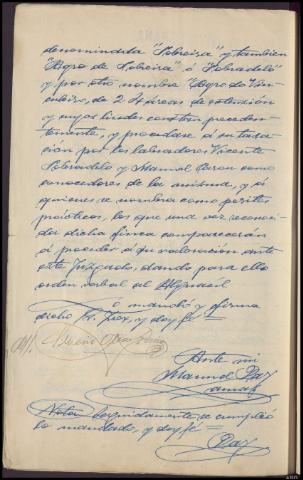 denominada "Sobreira" y tambien
"Agro de Sobreira" ó Sobradeló
y por otro nombre "Agro do Vin-
culeiro, de 24 áreas de extensión
y cuyos lindes constan preceden-
temente, y procédase á su tasa-
ción por los labradores Vicente
Sobradelo y Manuel Garan como
conocedores de la misma, y á
quienes se nombra como peritos
prácticos, los que una vez reconoci-
da dicha finca comparecerán
á proceder á su valoración ante
este Juzgado, dando para ello
orden verbal al Alguacil
ó mandó y firma
dicho Sr. Juez, y doy fé =
Ante mi
Manuel Paz
Nota= Seguidamente se cumplió
lo mandado, y doy fé =
Paz